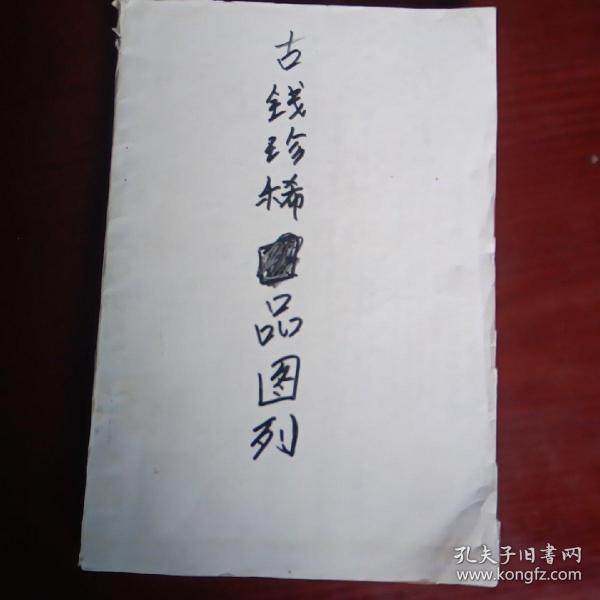 古钱珍稀品图列
孔夫子旧書网
www.kongfz.com